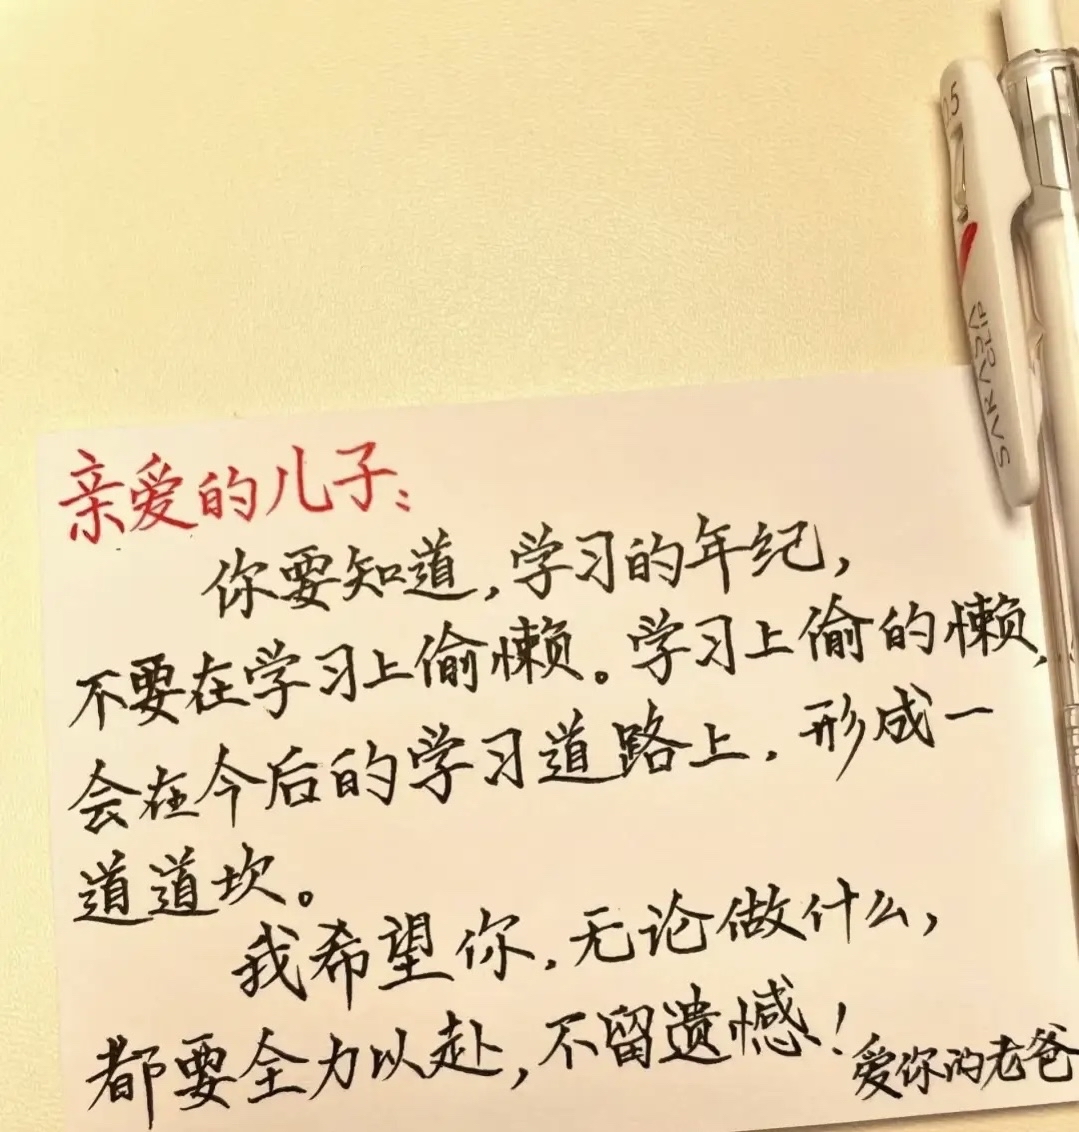 亲爱的儿子:
你要知道,学习的年纪,
不要在学习上偷懒。学习上偷的懒,
会在今后的学习道路上,形成一
道道坎。
我希望你,无论做什么,
都要全力以赴,不留遗憾!
爱你的老爸
0.5
SARASA CLIP